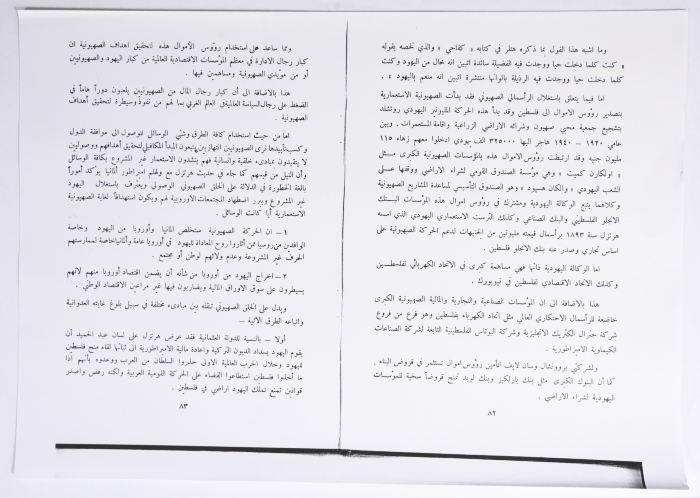 وما اشبه هذا القول بما ذكره هتلر في كتابه « كفاحي » والذي نلخصه بقوله
« كنت كلما دخلت حيا ووجدت فيه الفضيلة سائدة اتبين انه خال من اليهود وكنت
كلما دخلت حيا ووجدت فيه الرذيلة بالوانها منتشرة اتبين انه منعم باليهود » .
اما فيما يتعلق باستغلال الرأسمالي الصهيوني فقد بدأت الصهيونية الاستعمارية
بتصدير رؤوس الاموال الى فلسطين وقد بدأ هذه الحركة المليونير اليهودي روتشلد
بتشجيع جمعية محبي صهيون وشرائه الاراضي الزراعية واقامة المستعمرات . وبين
عامي ١٩٢٠ – ١٩٤٠ هاجر اليها ٣٢٥٠٠٠ الف يهودي ادخلوا معهم زهاء ١١٥
مليون جنيه وقد ارتبطت رؤوس الاموال هذه بالمؤسسات الصهيونية الكبرى مثل
« اولكارن كميت » وهي مؤسسة الصندوق القومي لشراء الاراضي ووقفها على
الشعب اليهودي « والكان هسيود » وهو الصندوق التأسيسي لمساعدة المشاريع الصهيونية
وكلاهما يتبع الوكالة اليهودية ومشترك في رؤوس اموال هذه المؤسسات البنك
الانجلو الفلسطيني والبنك الصناعي وكذلك الترست الاستعماري اليهودي الذي اسسه
هرتزل سنة ١٨٩٣ برأسمال قيمته مليونين من الجنيهات لدعم الحركة الصهيونية على
اساس تجاري وصدر عنه بنك الانجلو فلسطين .
اما الوكالة اليهودية ذاتها فهي مساهمة كبرى في الاتحاد الكهربائي لفلسطين
وكذلك الاتحاد الاقتصادي لفلسطين في نيويورك .
هذا بالاضافة الى ان المؤسسات الصناعية والتجارية والمالية الصهيونية الكبرى
خاضعة للرأسمال الاحتكاري العالمي مثل اتحاد الكهرباء بفلسطين وهو فرع من فروع
شركة جنرال الكتريك الانجليزية وشركة البوتاس الفلسطينية التابعة لشركة الصناعات
الكيماوية الامبراطورية .
ولشركتي برودنشال وسان لايف للتأمين رؤوس اموال تستثمر في قروض البناء .
كما أن البنوك الكبرى مثل بنك باركليز وبنك لويد تمنح قروضاً سخية للمؤسسات
اليهودية لشراء الاراضي .
٨٢
ومما ساعد على استخدام رؤوس الأموال هذه لتحقيق اهداف الصهيونية ان
كبار رجال الادارة في معظم المؤسسات الاقتصادية العالمية من كبار اليهود والصهيونيين
أو من مؤيدي الصهيونية ومساهمين فيها .
هذا بالاضافة الى أن كبار رجال المال من الصهيونيين يلعبون دوراً هاماً في
الضغط على رجال السياسة العالمية في العالم الغربي بما لهم من نفوذ وسيطرة لتحقيق أهداف
الصهيونية .
اما من حيث استخدام كافة الطرق وشتى الوسائل للوصول الى موافقة الدول
وكسب تأييدها لرى الصهيونيين انتهازيين يتبعون المبدأ المكيافيلي لتحقيق أهدافهم ووصوليين
لا يتقيدون بمبادىء خلقية وانسانية فهم ينشدون الاستعمار غير المشروع بكافة الوسائل
وأن النيل من قومهم كما جاء في حديث هرتزل مع ولهلم امبراطور ألمانيا يؤكد أموراً
بالغة الخطورة في الدلالة على الخلق الصهيوني الوصولي ويعترف باستغلال اليهود
غير المشروع ويبرر اضطهاد المجتمعات الاوروبية لهم ويكون استهدافاً لغاية الصهيونية
الاستعمارية أيا كانت الوسائل .
١ – ان الحركة الصهيونية ستخلص المانيا وأوروبا من اليهود وخاصة
الوافدين من روسيا ممن أثاروا روح المعاداة لليهود في أوروبا عامة وألمانيا خاصة لممارستهم
الحرف غير المشروعة وعدم ولائهم لوطن أو مجتمع .
٢ – اخراج اليهود من أوروبا من شأنه أن يضمن اقتصاد أوروبا منهم لانهم
يسيطرون على سوق الاوراق المالية ويضاربون فيها غير مراعين الاقتصاد الوطني .
ويدل على الخلق الصهيوني تنقله بين مبادىء مختلفة في سبيل بلوغ غايته العدوانية
واتباعه الطرق الاتية –
أولا – بالنسبة للدولة العثمانية فقد عرض هرتزل على لسان عبد الحميد أن
يقوم اليهود بسداد الديون التركية واعادة مالية الامبراطورية الى ثباتها لقاء منح فلسطين
لليهود وخلال الحرب العالمية الاولى حذروا السلطان من العرب ووعدوه بأنهم اذا
ما أخذوا فلسطين استطاعوا القضاء على الحركة القومية العربية ولكنه رفض واصدر
قوانين تمنع تملك اليهود اراضي في فلسطين .
٨٣